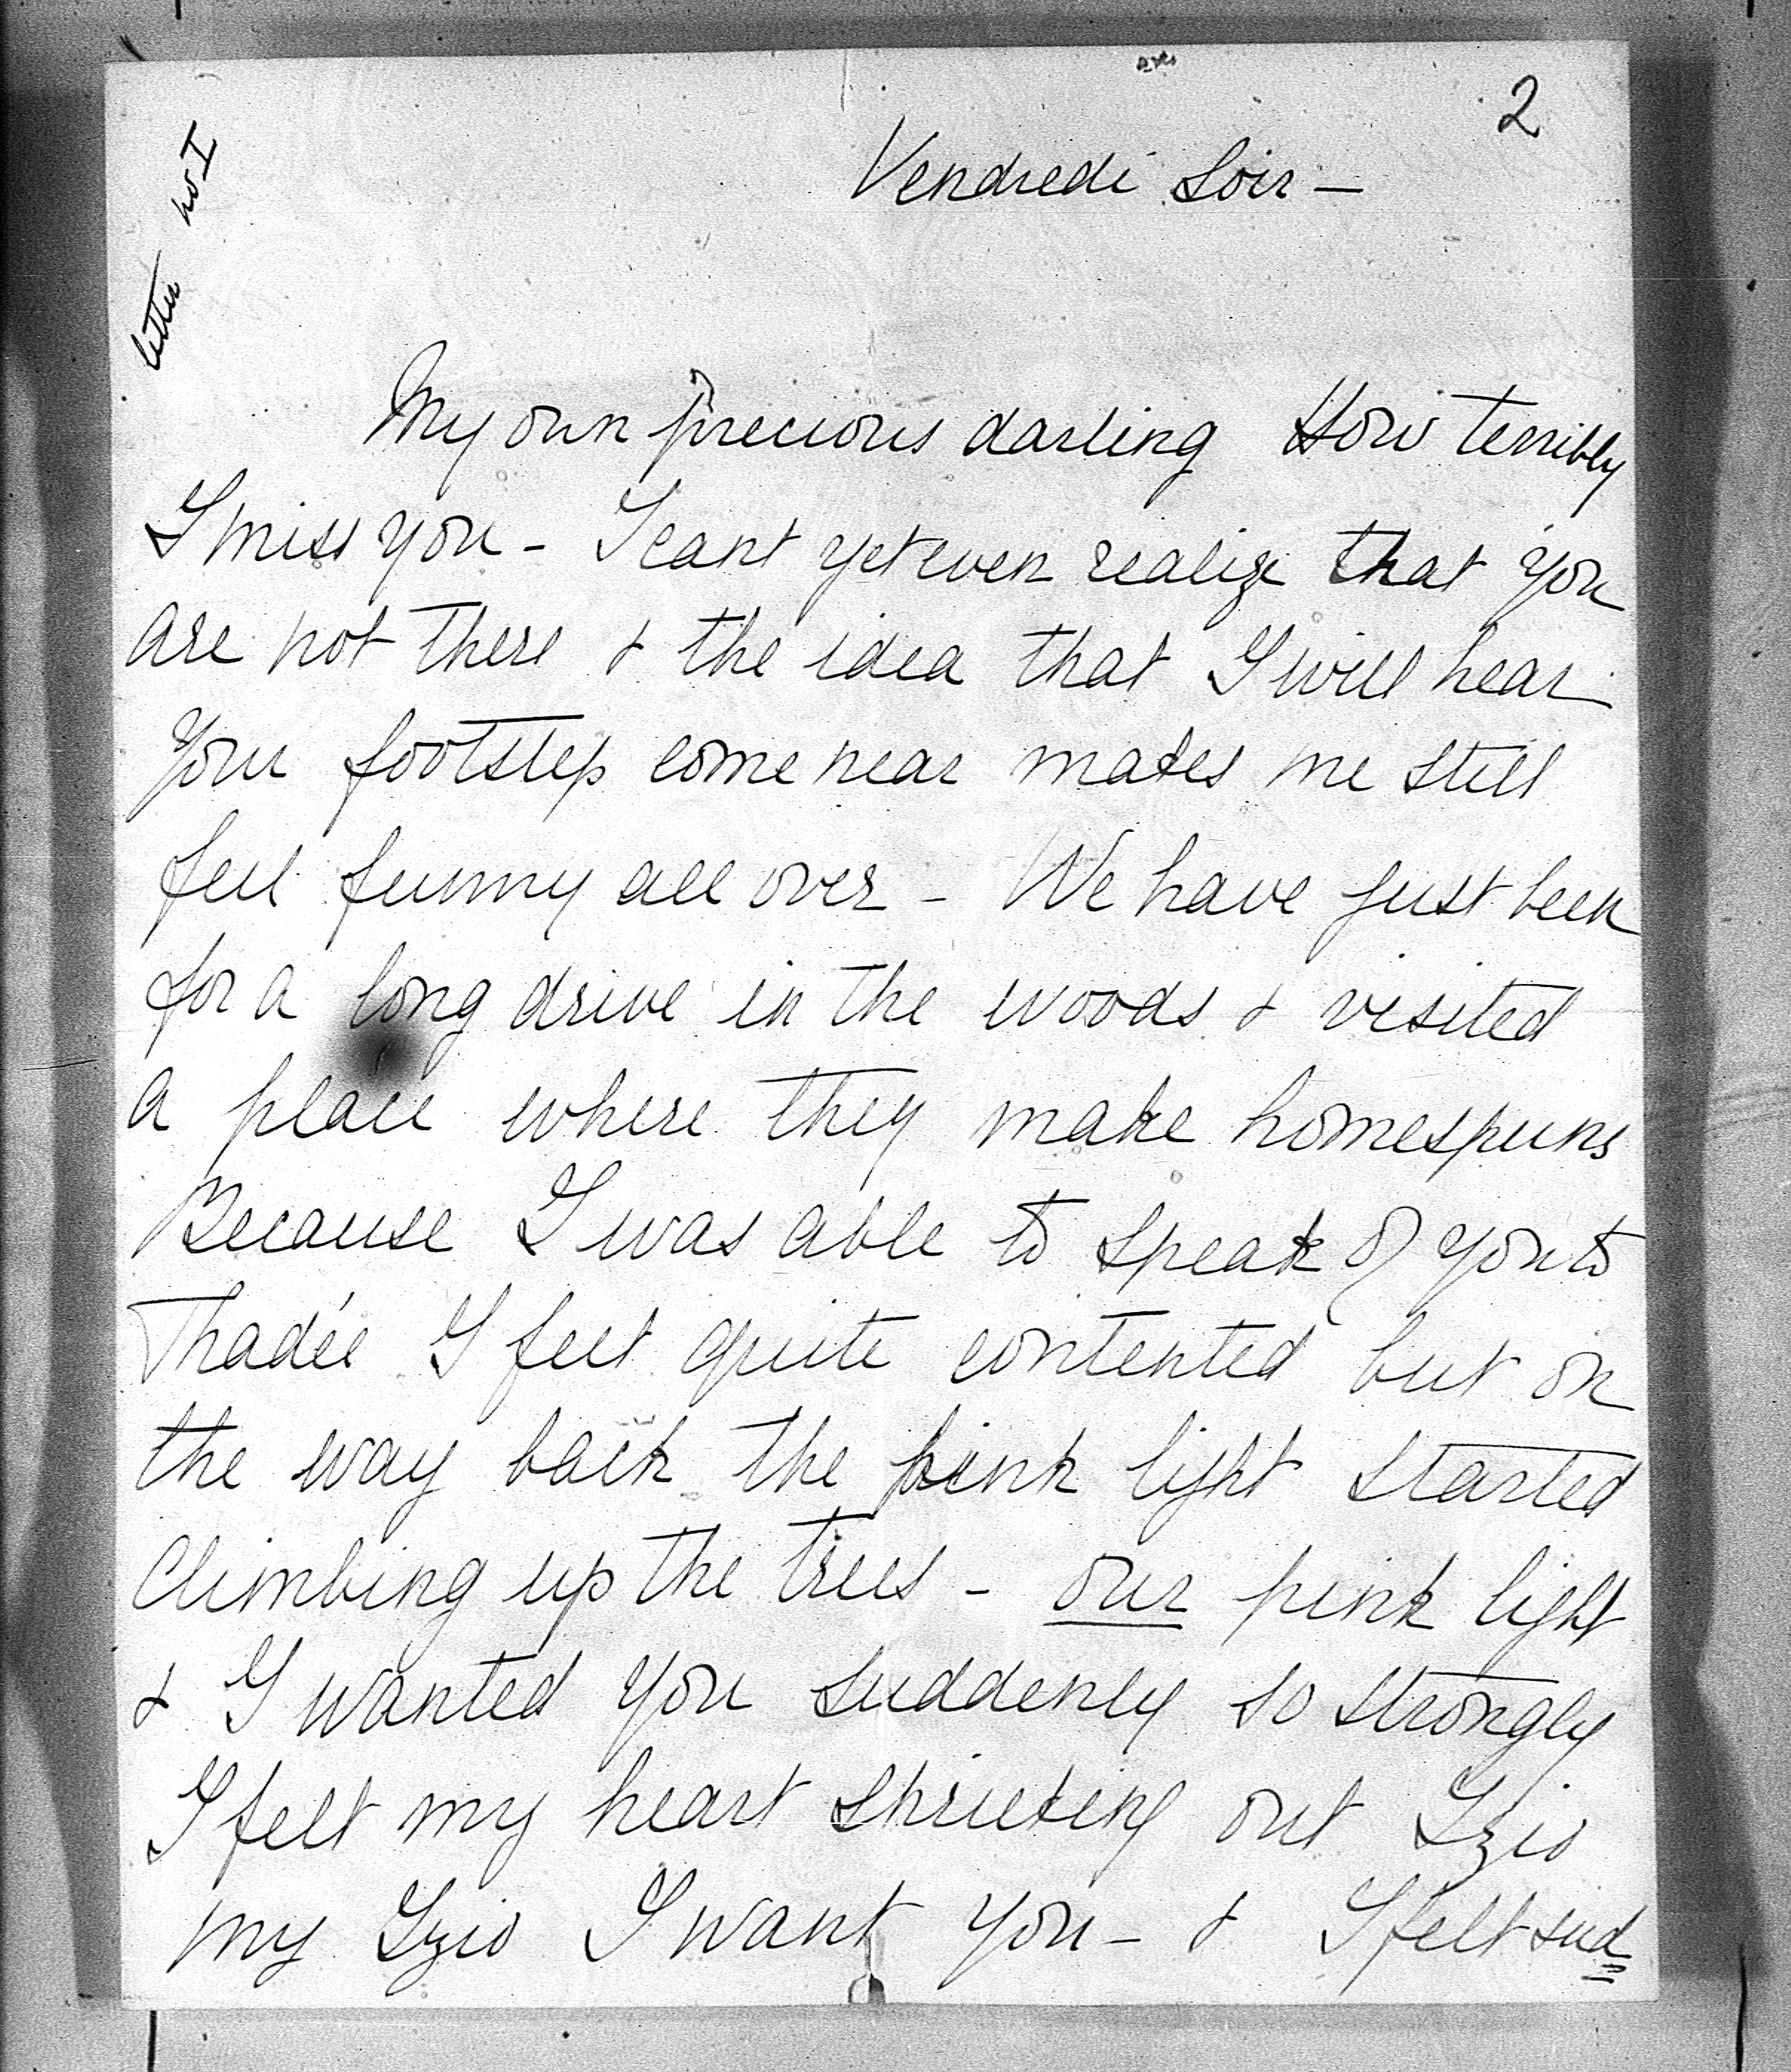 2
Vendredi Soir –
letter no I
My own precious darling How terribly
I miss you – I cant yet even realize that you
are not there & the idea that I will hear
your footstep come near makes me still
feel funny all over – We have just been
for a long drive in the woods & visited
a place where they make homespuns
Because I was able to speak of you to
Thadée I felt quite contented but on
the way back the pink light started
climbing up the trees – our pink light
& I wanted you suddenly so strongly
I felt my heart shrieking out Izio
my Izio I want you – & I felt sud